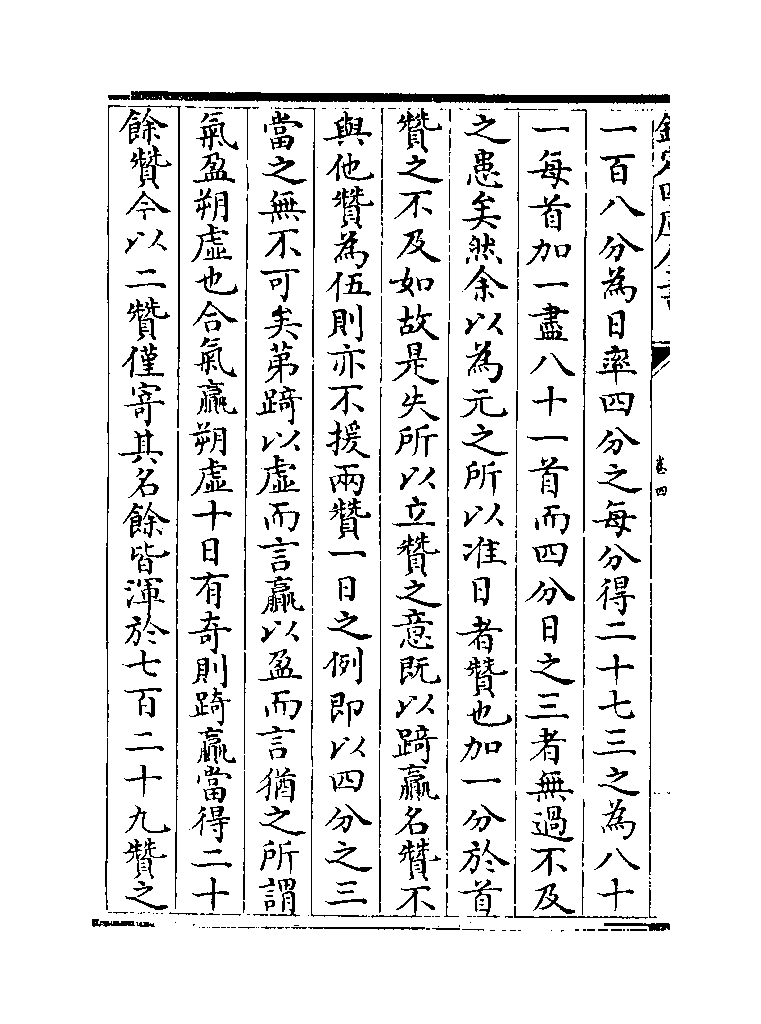 欽定四庫全書
卷四
一百八分為日率四分之每分得二十七三之為八十
一每首加一盡八十一首而四分日之三者無過不及
之患矣然余以為元之所以准日者贊也加一分於首
贊之不及如故是失所以立贊之意既以踦贏名贊不
與他贊為伍則亦不援兩贊一日之例即以四分之三
當之無不可矣第踦以虛而言贏以盈而言猶之所謂
氣盈朔虛也合氣贏朔虛十日有奇則踦贏當得二十
餘贊今以二贊僅寄其名餘皆渾於七百二十九贊之